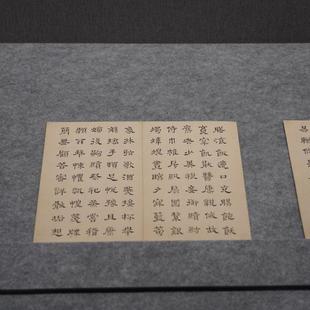 膳飡飯適口充腸飽飫
烹宰飢厭糟糠親戚故
舊老少異糧妾御績紡
侍巾帷房紈扇圓潔銀
燭煒煌晝眠夕寐藍筍
象牀絃歌酒讌接杯舉
觴矯手頓足悅豫且康
嫡後嗣續祭祀蒸嘗稽
顙再拜悚懼恐惶牋牒
簡要顧答審詳骸垢想